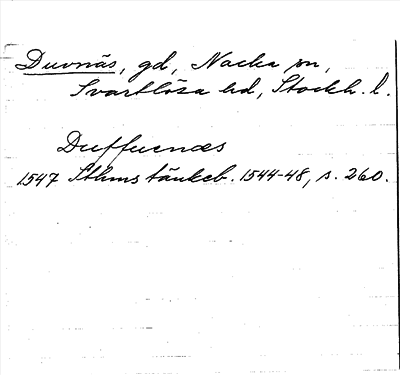 Duvnäs, gd, Nacka sn,
Svartlösa hd, Stockh. l.
Duffuenæs
1547 Sthms tänkeb. 1544-48, s. 260.